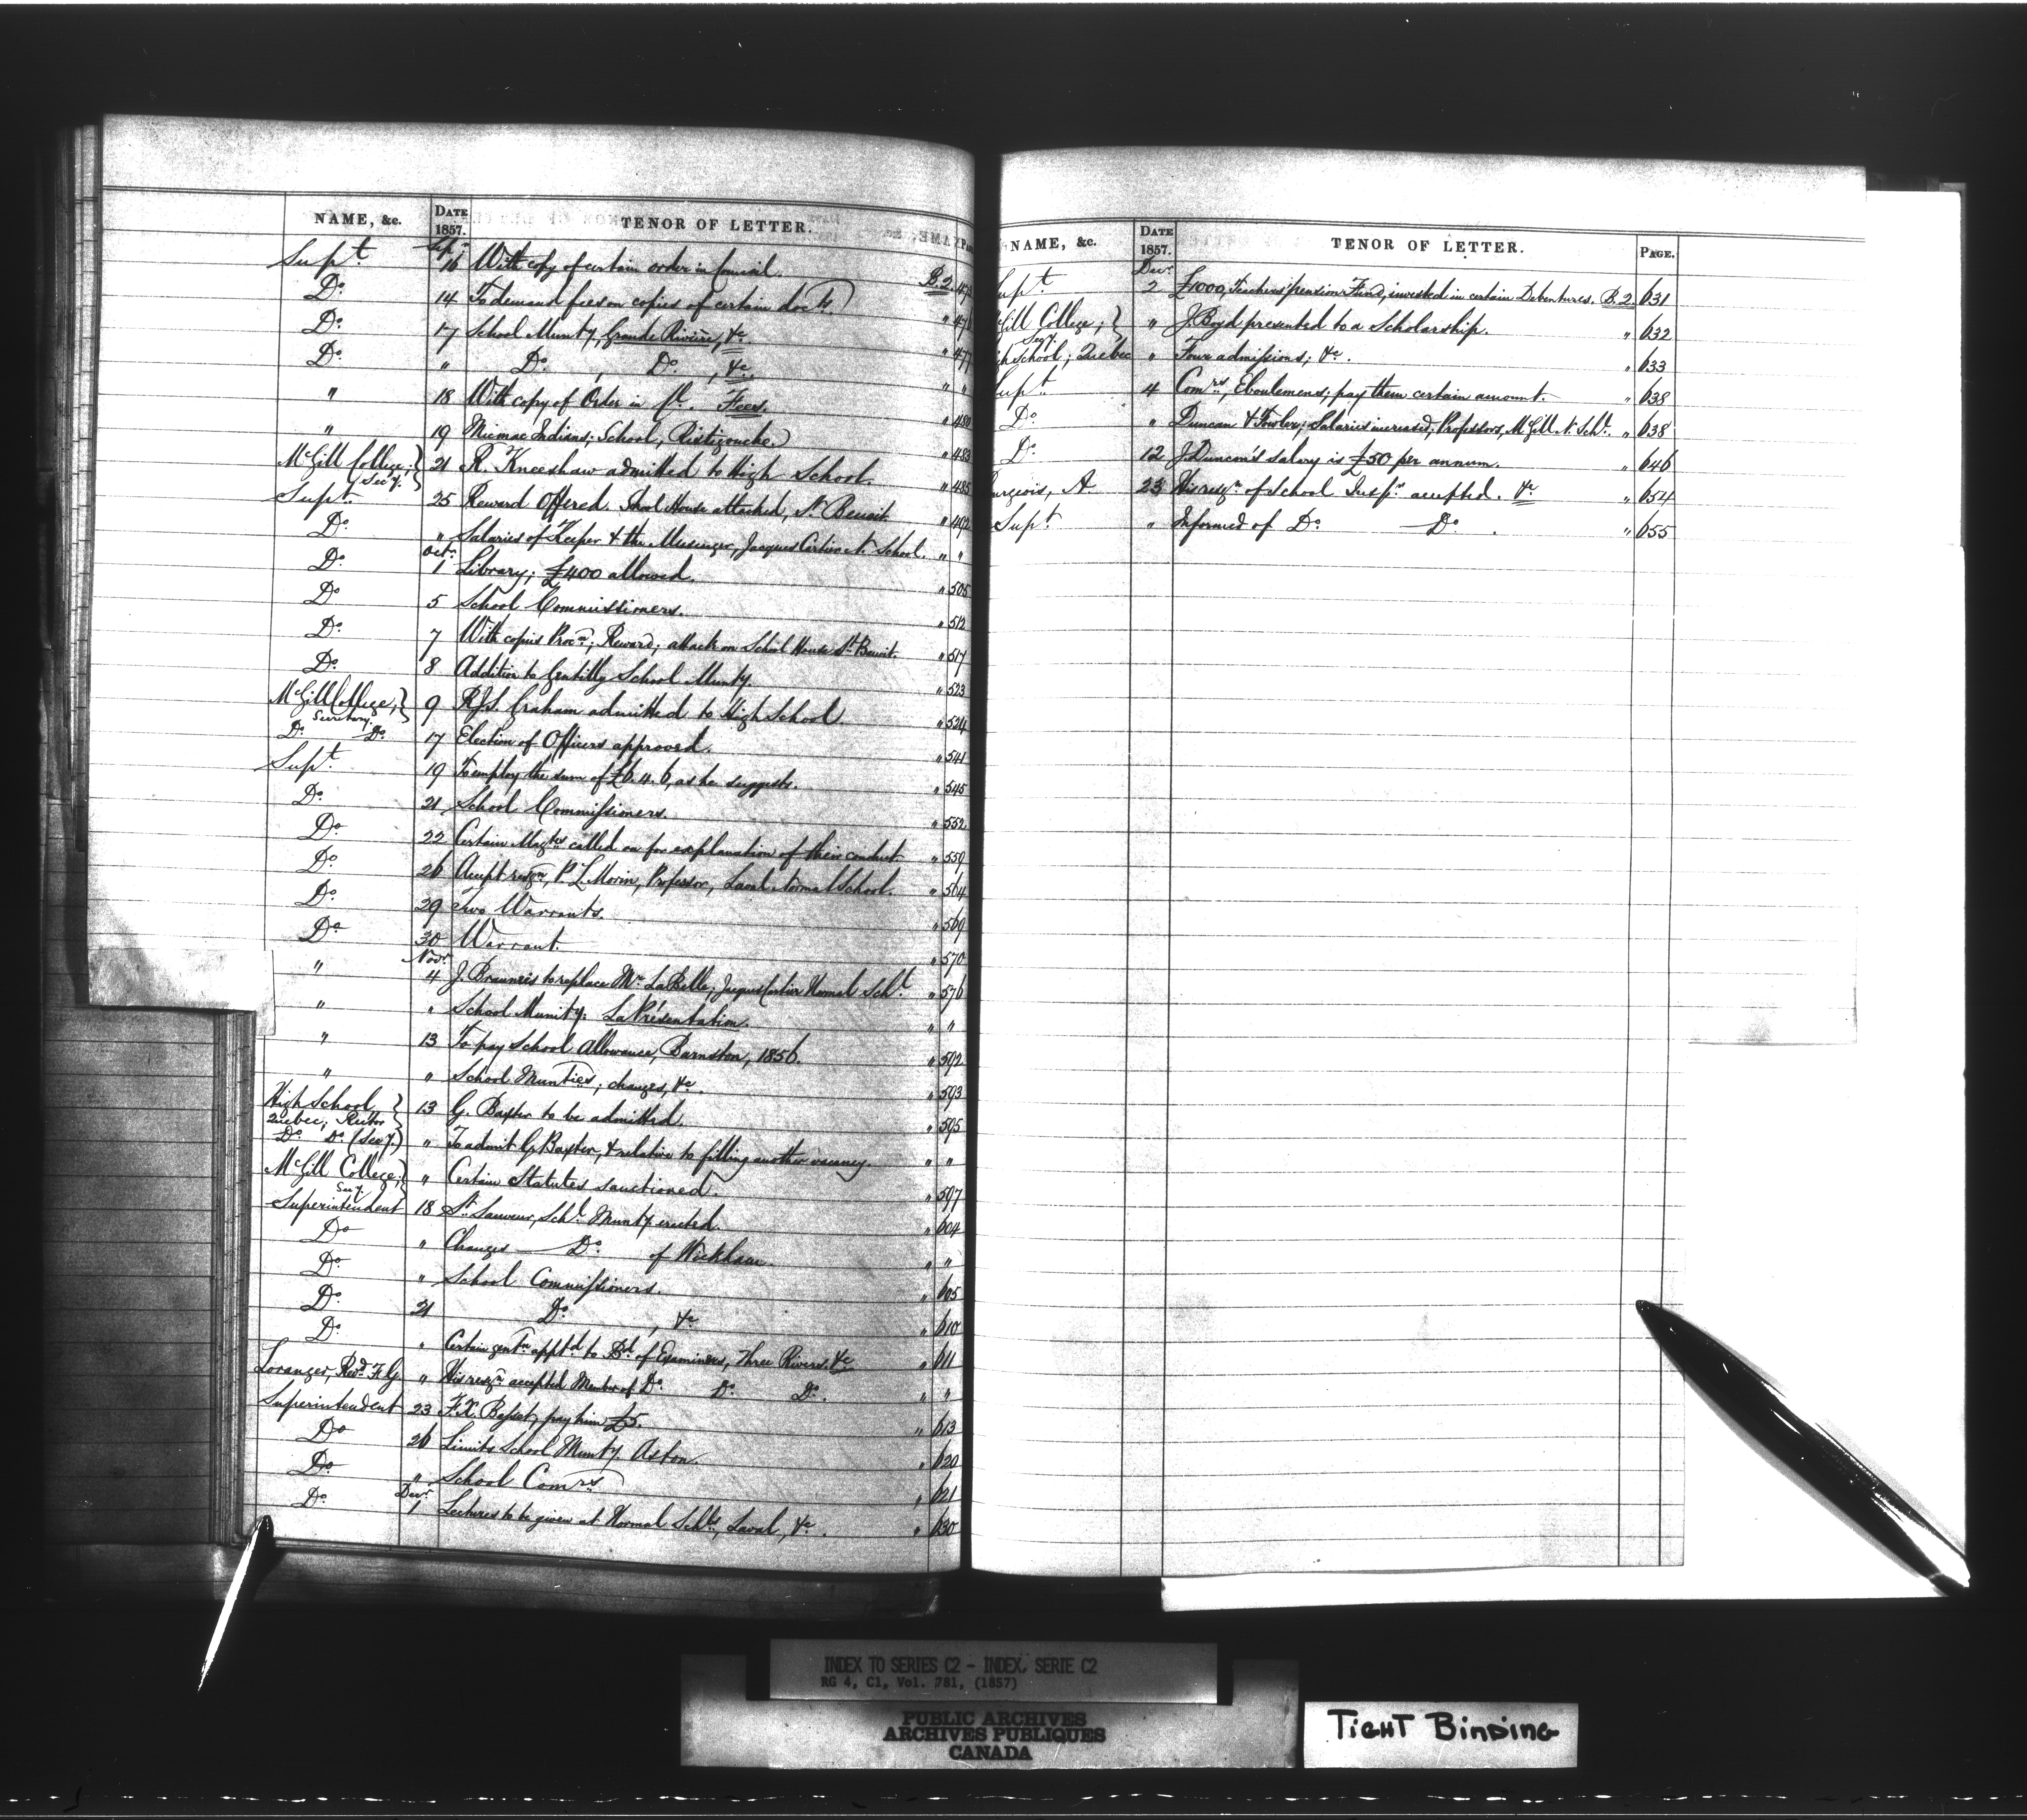 NAME, &c. DATE 1857. TENOR OF LETTER.
Supt Sepr 16 With copy of certain order in Council. B.2.
Do 14 To demand fees on copies of certain docts. " 476
Do 17 School Munty, Grande Rivière, &c. " 477
Do " Do , Do , &c. " "
" 18 With copy of Order in Cl. Fees. " 480
" 19 Micmac Indians; School, Ristigouche. " 483
McGill College; Secy. 21 R. Kneeshaw admitted to High School. " 485
Supt 25 Reward Offered. School House attacked, St Benoit. " 492
Do " Salaries of Keeper & the Messenger, Jacques Cartier N. School. " "
Do Octr 1 Library; £400 allowed. " 505
Do 5 School Commissioners. " 512
Do 7 With copies Procn; Reward; attack on School House St Benoit. " 517
Do 8 Addition to Gentilly School Munty. " 523
McGill College; Secretary. 9 R.J.S. Graham admitted to High School. " 524
Do Do 17 Election of Officers approved. " 541
Supt. 19 To employ the sum of £6.4.6, as he suggests. " 545
Do 21 School Commissioners. " 552
Do 22 Certain Magtes called on for explanation of their conduct " 559
Do 26 Accept resgn, P. L. Morin, Professor, Laval Normal School. " 564
Do 29 Two Warrants. " 569
Do 30 Warrant. " 570
" Novr 4 J. Brauneis to replace Mr LaBelle; Jacques Cartier Normal Schl. " 576
" " School Munity: La Présentation. " "
" 13 To pay School Allowance, Barnston, 1856. " 592
" " School Munties; changes, &c. " 593
High School, Quebec; Rector 13 G. Baxter to be admitted. " 595
Do Do (Secy.) " To admit G. Baxter, & relative to filling another vacancy. " "
McGill College; Secy. " Certain Statutes sanctioned. " 597
Superintendent 18 St Sauveur, Schl Munty erected. " 604
Do " Changes Do of Wickham. " "
Do " School Commissioners. " 605
Do 21 Do , &c " 610
Do " Certain gentn apptd to Bd of Examiners, Three Rivers. &c " 611
Loranger, Revd F. G. " His resgn accepted Member of Do Do Do. " "
Superintendent 23 F. X. Besset, pay him £5. " 613
Do 26 Limits School Munty. Aston. " 620
Do " School Comrs " 621
Do Decr 1 Lectures to be given at Normal Schls, Laval, &c. " 630
NAME, &c. DATE 1857. TENOR OF LETTER. PAGE.
Supt Decr 2 £1000, Teachers' pension Fund, invested in certain Debentures. B.2. 631
McGill College; Secy. " J. Boyd presented to a Scholarship. " 632
High School; Quebec " Four admissions; &c. " 633
Supt 4 Comrs, Eboulemens; pay them certain amount. " 638
Do " Duncan & Fowler; Salaries increased; Professors, McGill N. Schl. " 638
Do 12 J. Duncan's salary is £50 per annum. " 646
Bourgeois, A 23 His resgn of School Inspr accepted. &c " 654
Supt " Informed of Do Do . " 655
INDEX TO SERIES C2 - INDEX, SERIE C2
RG 4, C1, Vol. 781, (1857)
PUBLIC ARCHIVES
ARCHIVES PUBLIQUES
CANADA
TIGHT BINDING